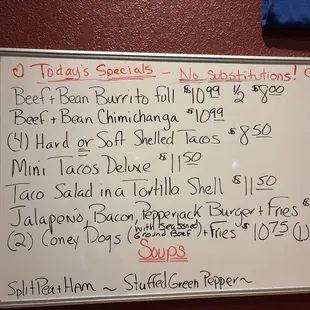 Today's Specials - No substitutions!
Beef + Bean Burrito full $10.99 ½ $8.00
Beef + Bean Chimichanga $10.99
(4) Hard or Soft Shelled Tacos $8.50
Mini Tacos Deluxe $11.50
Taco Salad in a Tortilla Shell $11.50
Jalapeno, Bacon, Pepperjack Burger + Fries $
(2) Coney Dogs (with Seasoned Ground Beef) + Fries $10.75 (1)
Soups
Split Pea + Ham ~ Stuffed Green Pepper ~